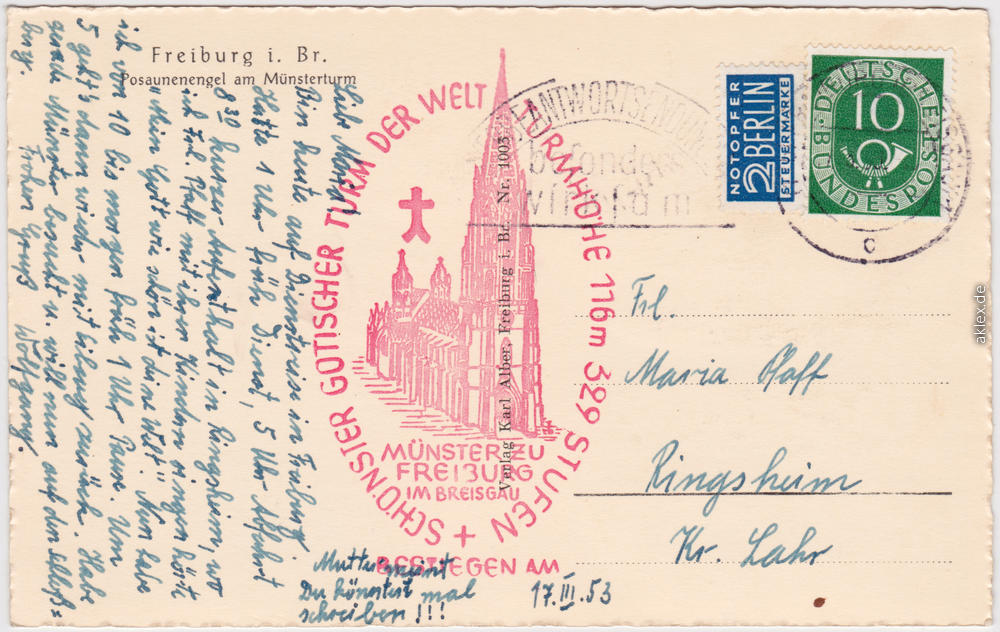 Freiburg i. Br.
Posaunenengel am Münsterturm
Liebe Maria!
Bin heute auf Dienstreise in Freiburg.
Hatte 1 Uhr früh Dienst, 5 Uhr Abfahrt
8 30 kurzer Aufenthalt in Ringsheim, wo
ich Frl. Pfaff mit ihren Kindern singen hörte
"Mein Gott wie schön ist deine Welt." Nun habe
ich von 10 bis morgen früh 1 Uhr Pause. Um
5 geht's dann wieder mit Eilzug zurück. Habe
gerade Münster besucht u. will nun auf den Schloß=
berg.
Frohen Gruß Wolfgang.
SCHÖNSTER GOTISCHER TURM DER WELT
TURMHÖHE 116m 329 STUFEN +
MÜNSTER ZU
FREIBURG
IM BREISGAU
BESTIEGEN AM
17.III.53
Mutter meint
Du könntest mal
schreiben!!!
Verlag Karl Alber, Freiburg i. Br. Nr. 1003
besonders
wirksam
NOTOPFER
2 BERLIN
STEUERMARKE
DEUTSCHE
10
BUNDESPOST
c
Frl.
Maria Pfaff
Ringsheim
Kr. Lahr
aklex.de